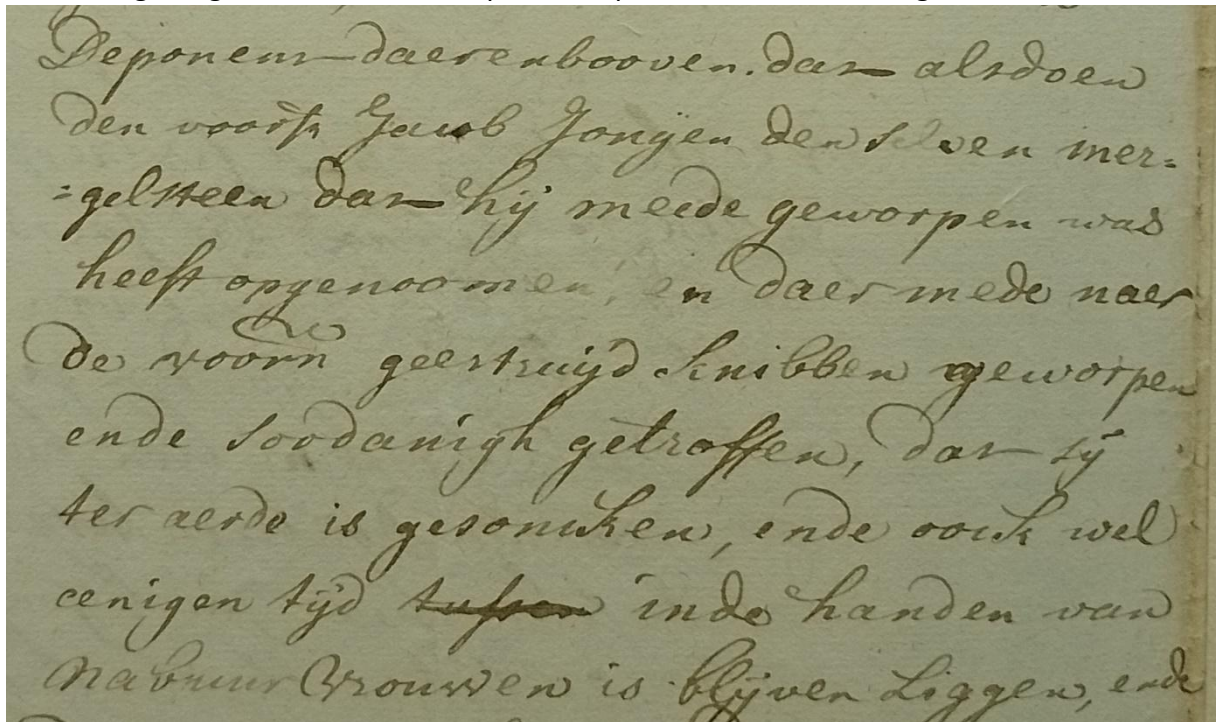 Deponent daerenbooven. dat alsdoen
den voors. Jacob Jongen den selven mer=
=gelsteen dat hij meede geworpen was
heeft opgenoomen, en daer mede naer
de voorn geertruijd Knibben geworpen
ende soodanigh getroffen, dat sij
ter aerde is gesoncken, ende oock wel
eenigen tijd tussen inde handen van
nabuur vrouwen is blijven Liggen, ende